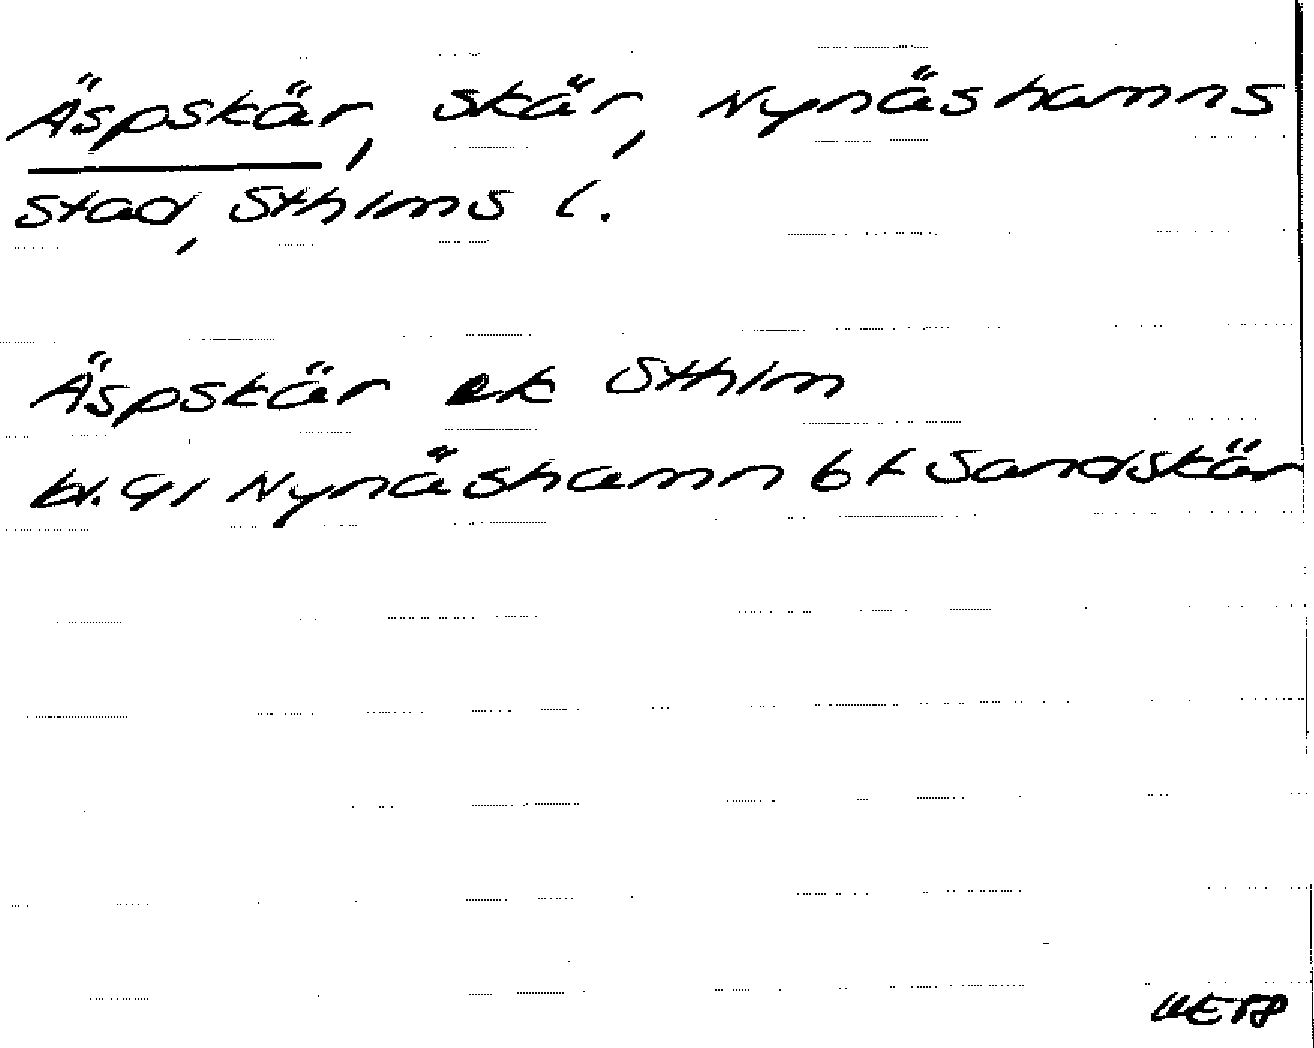 Äspskär, skär, Nynäshamns
stad, Sthlms l.
Äspskär ek Sthlm
bl. 91 Nynäshamn bf Sandskär